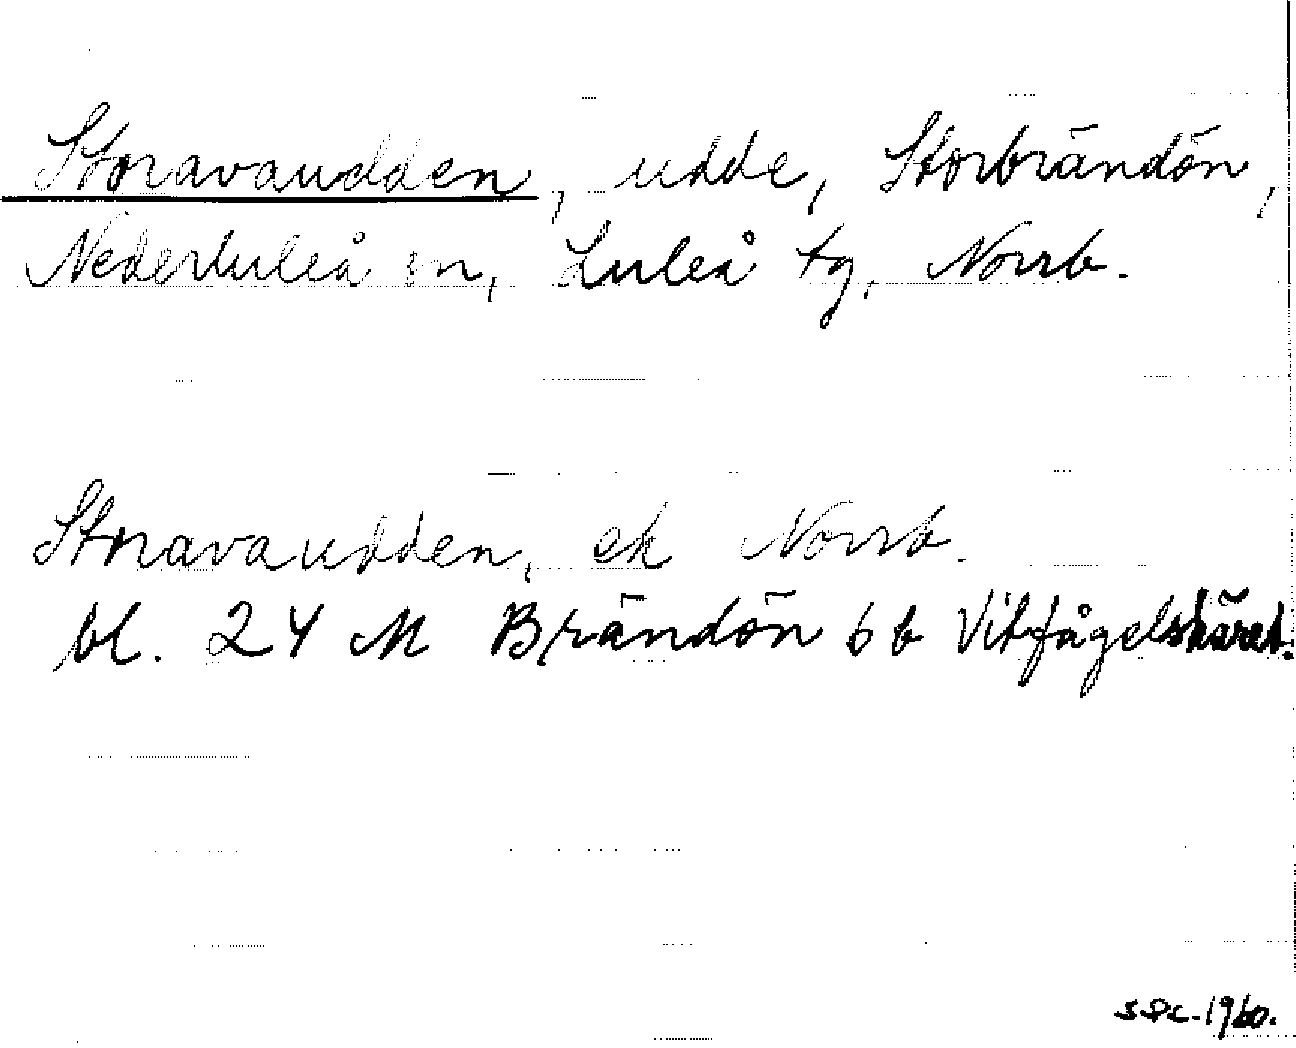 Storavaudden, udde, Storbrändön,
Nederluleå sn, Luleå tg, Norrb.
Storavaudden, ek Norrb.
bl. 24 M Brändön 6 b Vitfågelskäret.
1960.